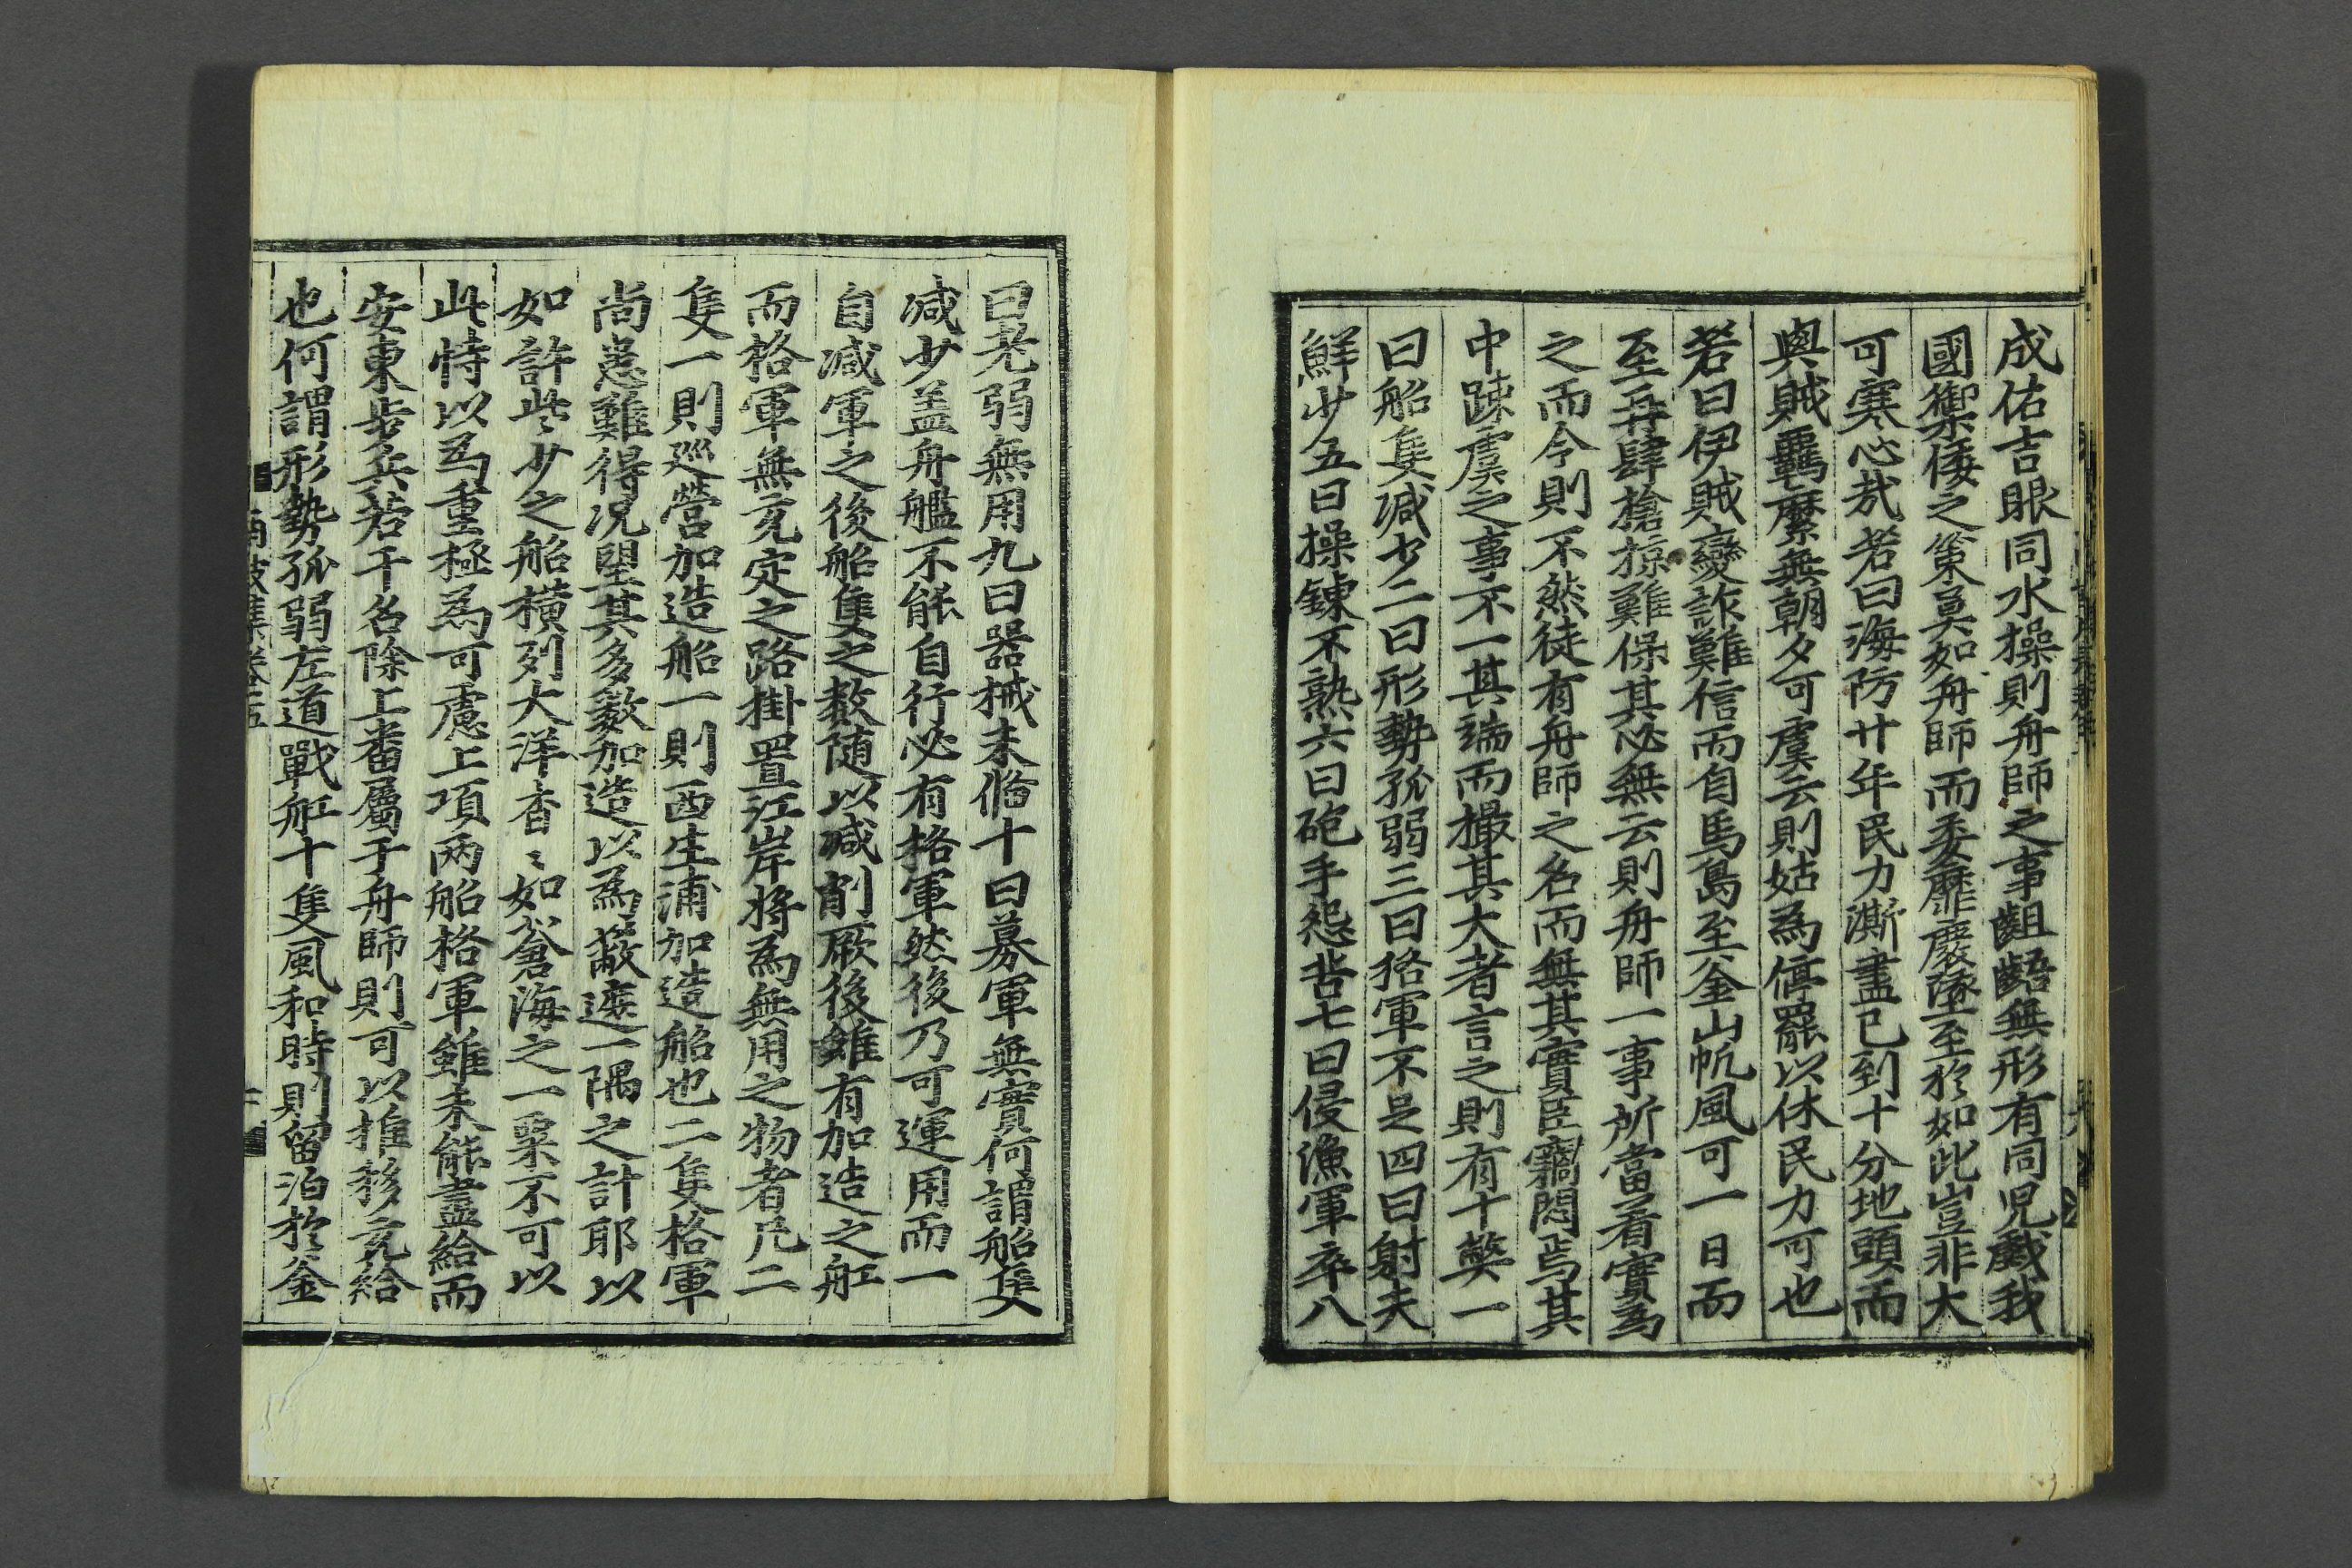 成佑吉眼同水操則舟師之事齟齬無形有同兒戱我
國禦倭之策莫如舟師而委靡廢墜至於如此豈非大
可寒心㦲若曰海防廿年民力澌盡已到十分地頭而
與賊羈縻無朝夕可虞云則姑爲停罷以休民力可也
若曰伊賊變詐難信而自馬島至釜山帆風可一日而
至再肆搶掠難保其必無云則舟師一事所當着實爲
之而今則不然徒有舟師之名而無其實臣竊悶焉其
中踈虞之事不一其端而撮其大者言之則有十弊一
曰船隻減少二曰形勢孤弱三曰格軍不足四曰射夫
鮮少五曰操鍊不熟六曰砲手怨苦七曰侵漁軍卒八
曰老弱無用九曰器械未俻十曰募軍無實何謂船隻
减少盖舟艦不能自行必有格軍然後乃可運用而一
自减軍之後船隻之數随以减削厥後雖有加造之舡
而格軍無充定之路掛置江岸將爲無用之物者凡二
隻一則廵營加造船一則西生浦加造船也二隻格軍
尚患難得况望其多數加造以爲蔽遮一隅之計耶以
如許些少之船横列大洋杳〻如滄海之一粟不可以
此恃以爲重極爲可慮上項兩船格軍雖未能盡給而
安東步兵若干名除上番屬于舟師則可以推移充給
也何謂形勢孤弱左道戰舡十隻風和時則留泊於釜